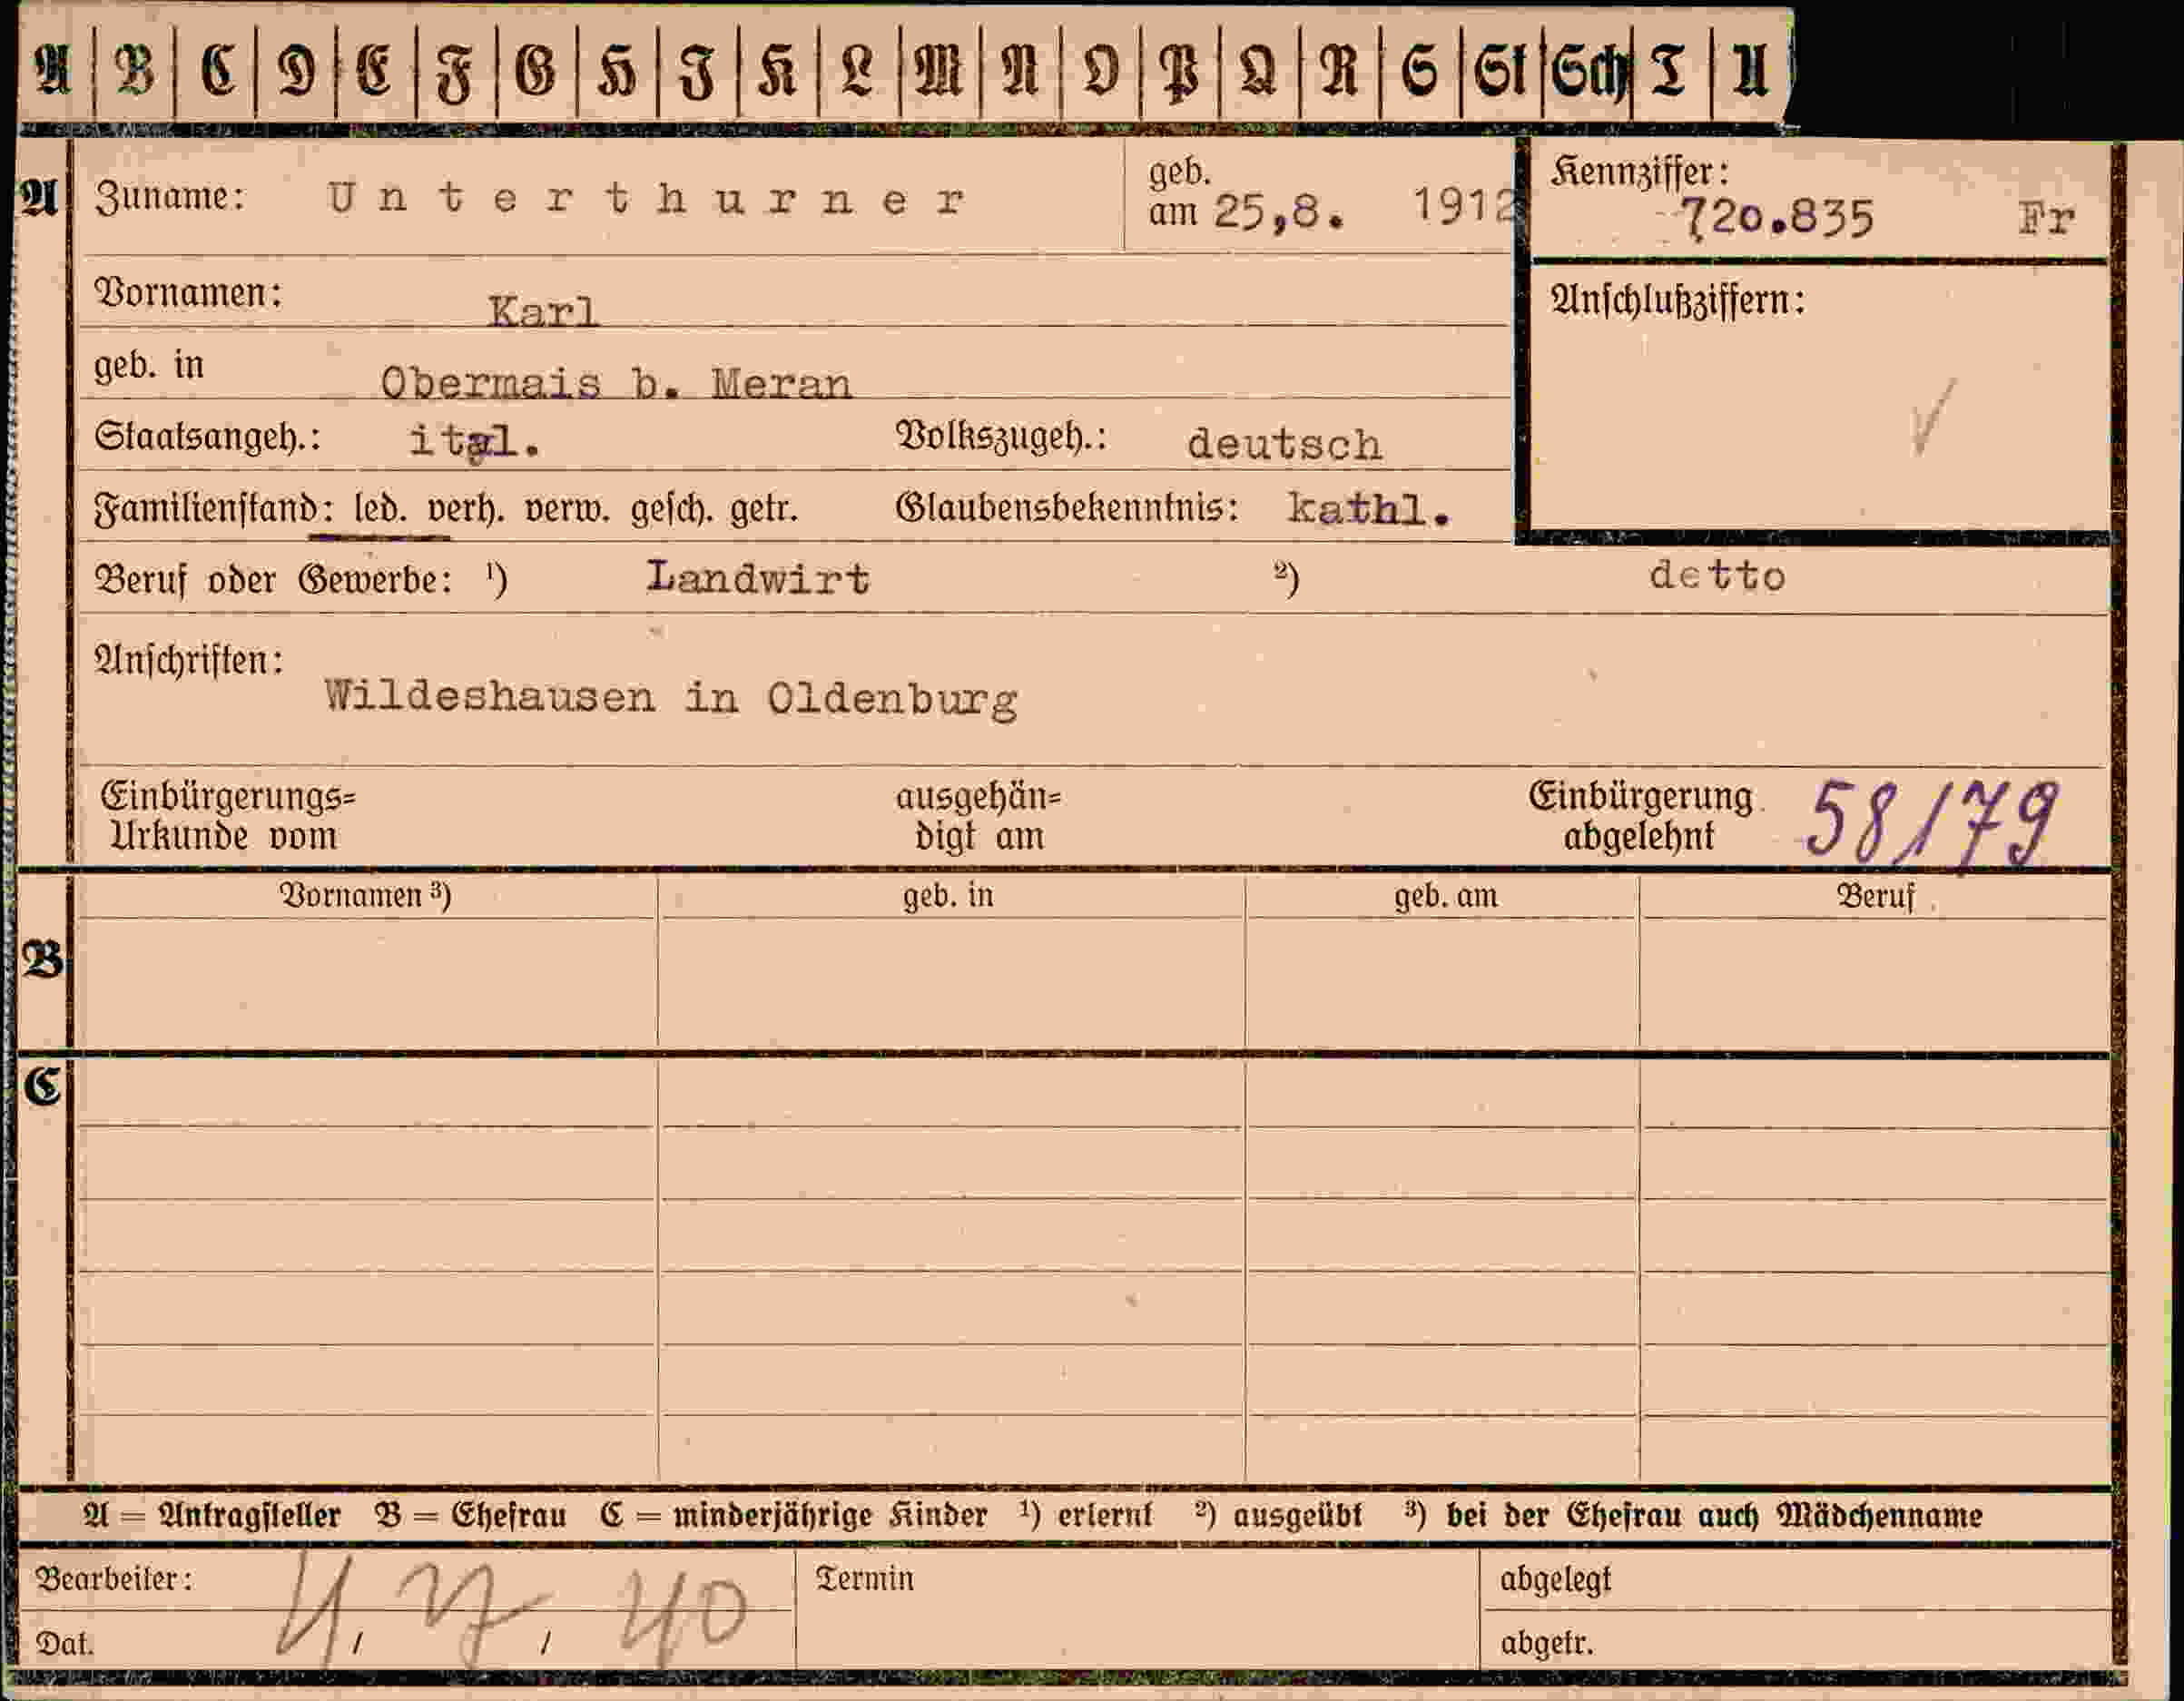 A B C D E F G H I K L M N O P Q R S St Sch T U
A Zuname: Unterthurner geb. am 25,8. 1912 Kennziffer: 720.835 Fr
Vornamen: Karl Anschlußziffern:
geb. in Obermais b. Meran
Staatsangeh.: ital. Volkszugeh.: deutsch
Familienstand: led. verh. verw. gesch. getr. Glaubensbekenntnis: kathl.
Beruf oder Gewerbe: ¹) Landwirt ²) detto
Anschriften:
Wildeshausen in Oldenburg
Einbürgerungs= ausgehän= Einbürgerung 58/79
Urkunde vom digt am abgelehnt
Vornamen ³) geb. in geb. am Beruf
B
C
A = Antragsteller B = Ehefrau C = minderjährige Kinder ¹) erlernt ²) ausgeübt ³) bei der Ehefrau auch Mädchenname
Bearbeiter: Termin abgelegt
Dat. 4, 7, 40 abgetr.